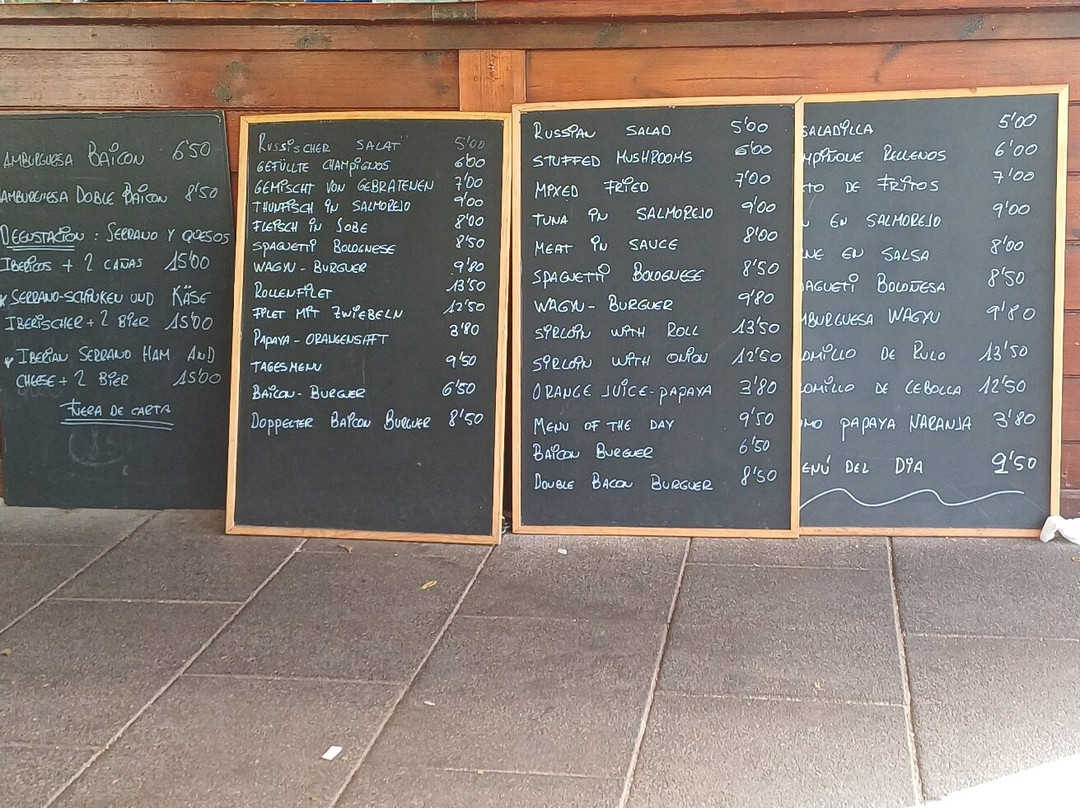 AMBURGUESA BAICON 6'50
AMBURGUESA DOBLE BAICON 8'50
DEGUSTACION: SERRANO Y QUESOS
IBERICOS + 2 CAÑAS 15'00
SERRANO-SCHINKEN UND KÄSE
IBERISCHER + 2 BIER 15'00
IBERIAN SERRANO HAM AND
CHEESE + 2 BIER 15'00
FUERA DE CARTA
RUSSISCHER SALAT 5'00
GEFÜLLTE CHAMPIGNOS 6'00
GEMISCHT VON GEBRATENEN 7'00
THUNFISCH IN SALMOREJO 9'00
FLEISCH IN SOBE 8'00
SPAGNETTI BOLOGNESE 8'50
WAGYU - BURGUER 9'80
ROLLENFILET 13'50
FILET MIT ZWIEBELN 12'50
PAPAYA - ORANGENSAFT 3'80
TAGESMENU 9'50
BAICON - BURGUER 6'50
DOPPELTER BAICON BURGUER 8'50
RUSSIAN SALAD 5'00
STUFFED MUSHROOMS 6'00
MIXED FRIED 7'00
TUNA IN SALMOREJO 9'00
MEAT IN SAUCE 8'00
SPAGNETTI BOLOGNESE 8'50
WAGYU - BURGUER 9'80
SIRLOIN WITH ROLL 13'50
SIRLOIN WITH ONION 12'50
ORANGE JUICE - PAPAYA 3'80
MENU OF THE DAY 9'50
BAICON BURGUER 6'50
DOUBLE BACON BURGUER 8'50
SALADILLA 5'00
MPIÑONE RELLENOS 6'00
TO DE FRITOS 7'00
EN SALMOREJO 9'00
NE EN SALSA 8'00
AGUETI BOLOÑESA 8'50
MBURGUESA WAGYU 9'80
OMILLO DE RULO 13'50
OMILLO DE CEBOLLA 12'50
MO PAPAYA NARANJA 3'80
ENÚ DEL DIA 9'50